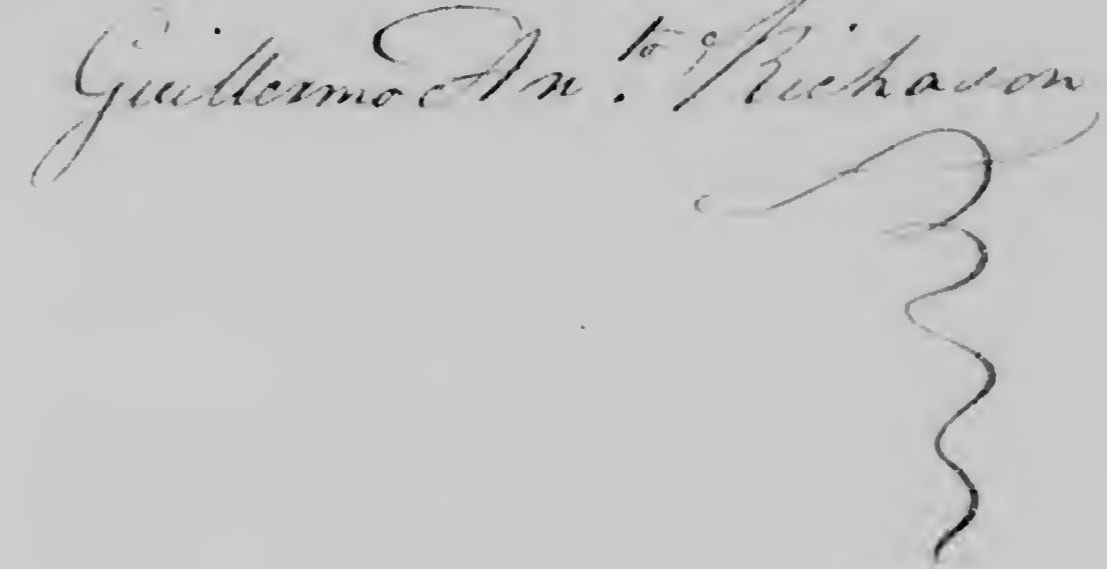 Guillermo An.to Richason